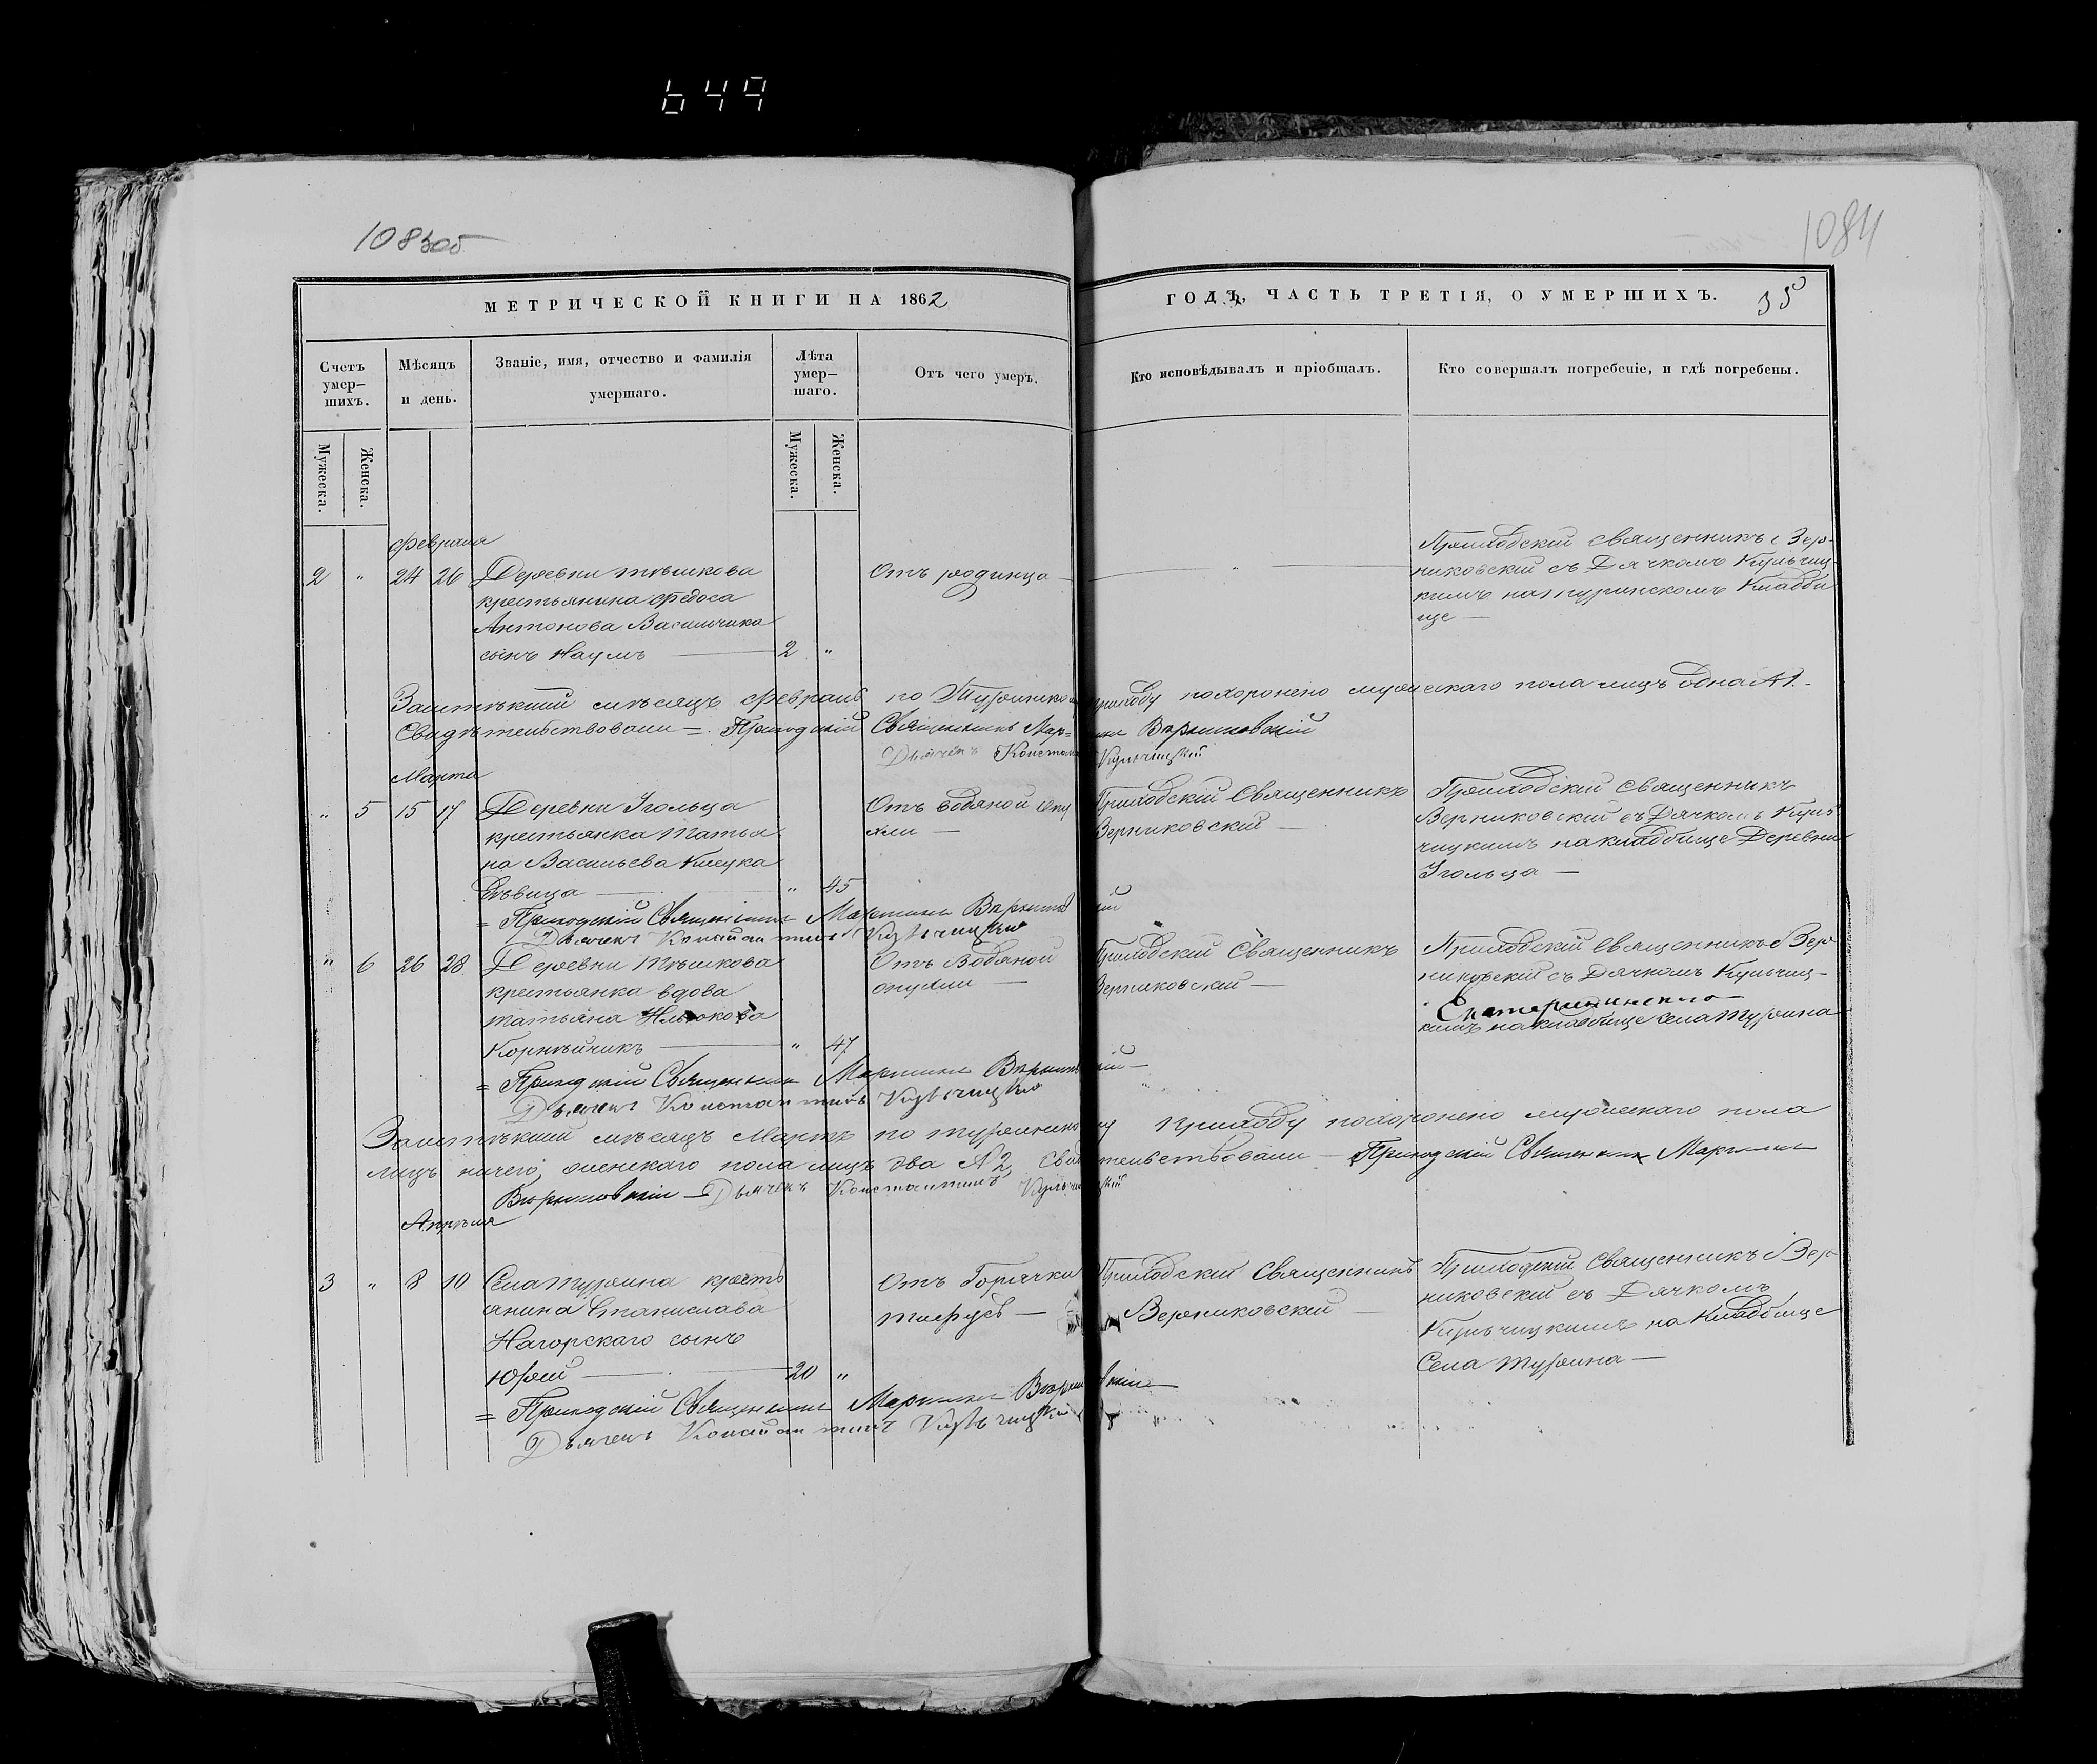 649
1083об
1084
МЕТРИЧЕСКОЙ КНИГИ НА 1862
ГОДЪ, ЧАСТЬ ТРЕТІЯ, О УМЕРШИХЪ.
35
Счетъ умер-шихъ.
Мѣсяцъ и день.
Званіе, имя, отчество и фамилія умершаго.
Лѣта умер-шаго.
Отъ чего умеръ.
Кто исповѣдывалъ и пріобщалъ.
Кто совершалъ погребеніе, и гдѣ погребены.
Мужеска.
Женска.
Мужеска.
Женска.
Февраля
2 " 24 26
Деревни
крестьянина Федоса
Антонова Васильчика
сынъ Наумъ — 2 "
Отъ родимца
— " —
Приходскій священникъ Вер-
никовскій съ Дячкомъ Кульчиц-
кимъ на Туринскомъ Кладби
ще —
мѣсяцъ Февраль по приходу похоронено мужескаго пола лицъ одна №1.
Свидѣтельствовали = Приходскій Священникъ Мар= Верниковскій
Дьячекъ Кульчицкій
Марта
" 5 15 17
Деревни Угольца
крестьянка Татья
на Васильева
— " 45
Отъ водяной опу
хли —
Приходскій Священникъ
Верниковскій —
Приходскій священникъ
Верниковскій съ Дячкомъ Куль
чицкимъ на кладбище Деревни
Угольца —
= Приходскій Священникъ Мартинъ Верниковскій
Дьячекъ Константинъ Кульчицкій
" 6 26 28
Деревни
крестьянка вдова
Татьяна
Корнѣйчикъ — " 47
Отъ Водяной
опухли —
Приходскій Священникъ
Верниковскій —
Приходскій Священникъ Вер
никовскій съ Дячкомъ Кульчиц-
кимъ на кладбище села Турина
= Приходскій Священникъ Мартинъ Верниковскій —
Дьячекъ Константинъ Кульчицкій
мѣсяцъ Мартъ по Туринскому приходу похоронено мужескаго пола
лицъ ничего, женскаго пола лицъ два №2, свидѣтельствовали — Приходскій Священникъ Мартинъ
Верниковскій — Дьячекъ Константинъ Кульчицкій
Апрѣля
3 " 8 10
Села Турина кресть
янина Станислава
Нагорскаго сынъ
Юрій — 20 "
Отъ Горячки
тифусъ —
Приходскій Священникъ
Верниковскій —
Приходскій Священникъ Вер
никовскій съ Дячкомъ
Кульчицкимъ на Кладбище
Села Турина —
= Приходскій Священникъ Мартинъ Верниковскій —
Дьячекъ Константинъ Кульчицкій